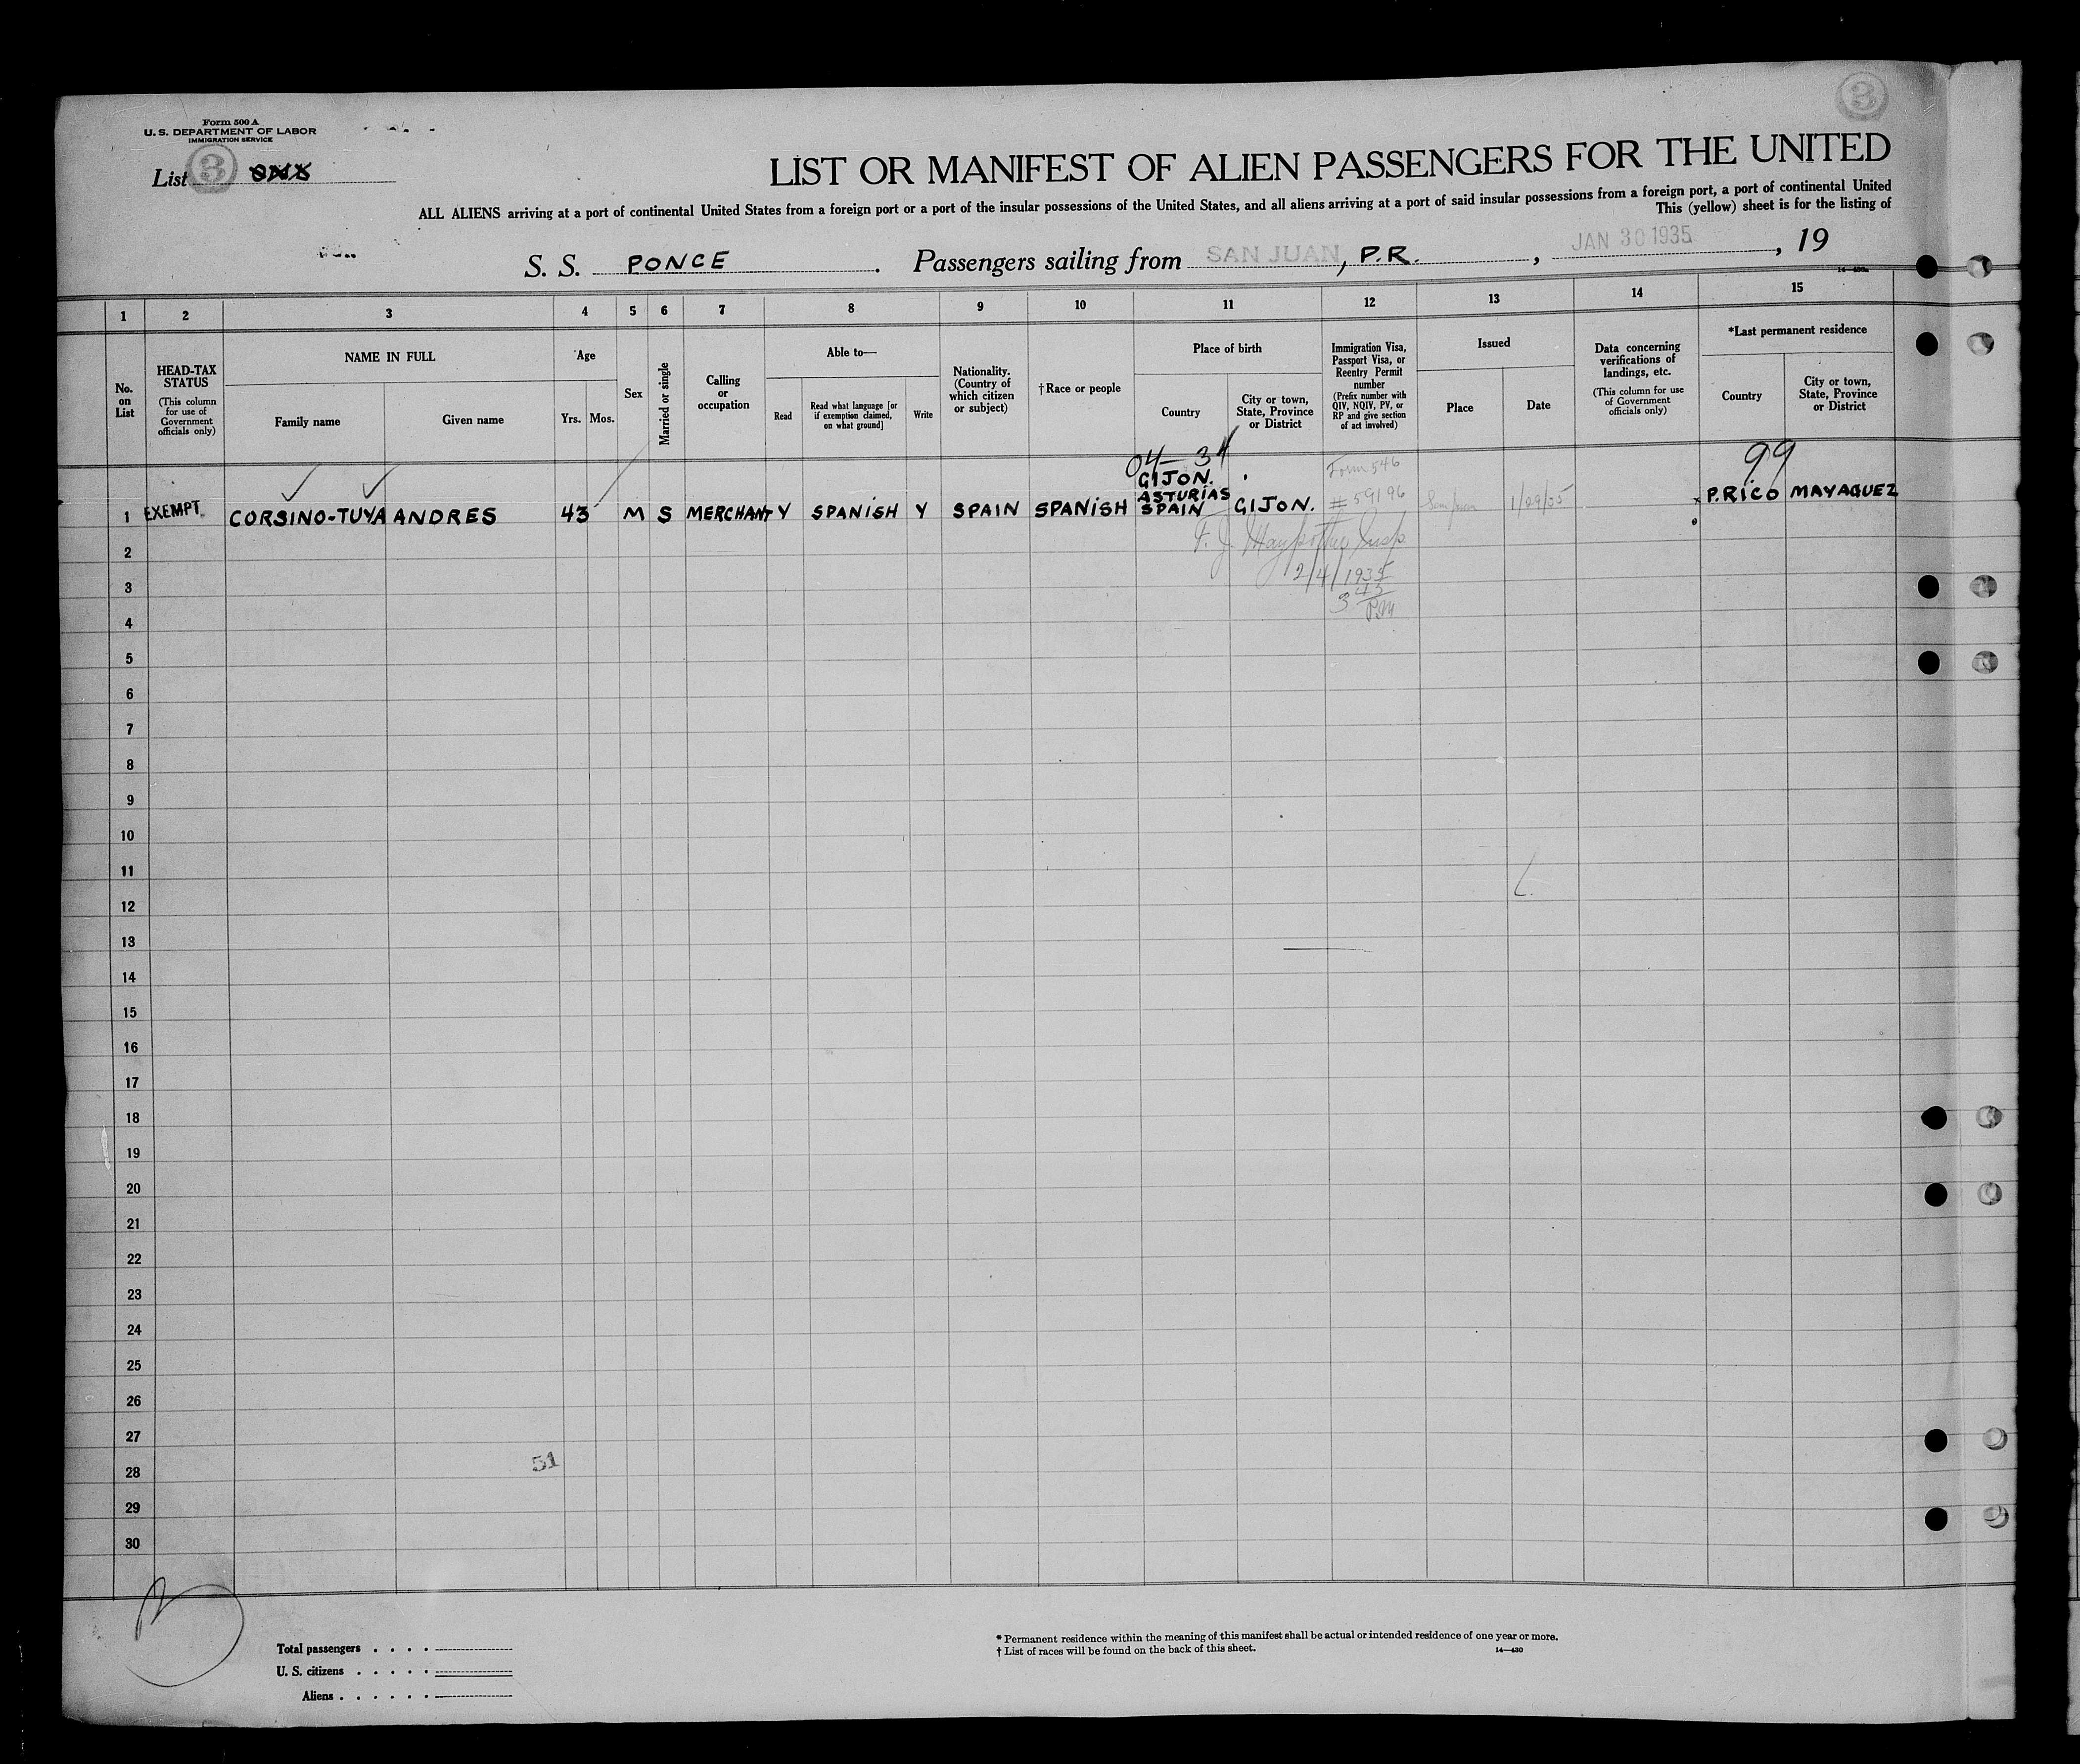 3
Form 500 A
U. S. DEPARTMENT OF LABOR
IMMIGRATION SERVICE
List 3
LIST OR MANIFEST OF ALIEN PASSENGERS FOR THE UNITED
ALL ALIENS arriving at a port of continental United States from a foreign port or a port of the insular possessions of the United States, and all aliens arriving at a port of said insular possessions from a foreign port, a port of continental United
This (yellow) sheet is for the listing of
S. S. PONCE . Passengers sailing from SAN JUAN, P.R. , JAN 30 1935 , 19
1 2 3 4 5 6 7 8 9 10 11 12 13 14 15
No. on List
HEAD-TAX STATUS
(This column for use of Government officials only)
NAME IN FULL
Family name
Given name
Age
Yrs.
Mos.
Sex
Married or single
Calling or occupation
Able to—
Read
Read what language [or if exemption claimed, on what ground]
Write
Nationality. (Country of which citizen or subject)
†Race or people
Place of birth
Country
City or town, State, Province or District
Immigration Visa, Passport Visa, or Reentry Permit number
(Prefix number with QIV, NQIV, PV, or RP and give section of act involved)
Issued
Place
Date
Data concerning verifications of landings, etc.
(This column for use of Government officials only)
*Last permanent residence
Country
City or town, State, Province or District
04—34
99
GIJON.
Form 546
1 EXEMPT CORSINO-TUYA ANDRES 43 M S MERCHANT Y SPANISH Y SPAIN SPANISH ASTURIAS SPAIN GIJON. #59196 1/29/35 P.RICO MAYAGUEZ
F. J. Insp
2/4/1935
3 43 P.M
2
3
4
5
6
7
8
9
10
11
12
13
14
15
16
17
18
19
20
21
22
23
24
25
26
27
51
28
29
30
Total passengers
U. S. citizens
Aliens
* Permanent residence within the meaning of this manifest shall be actual or intended residence of one year or more.
† List of races will be found on the back of this sheet.
14—430